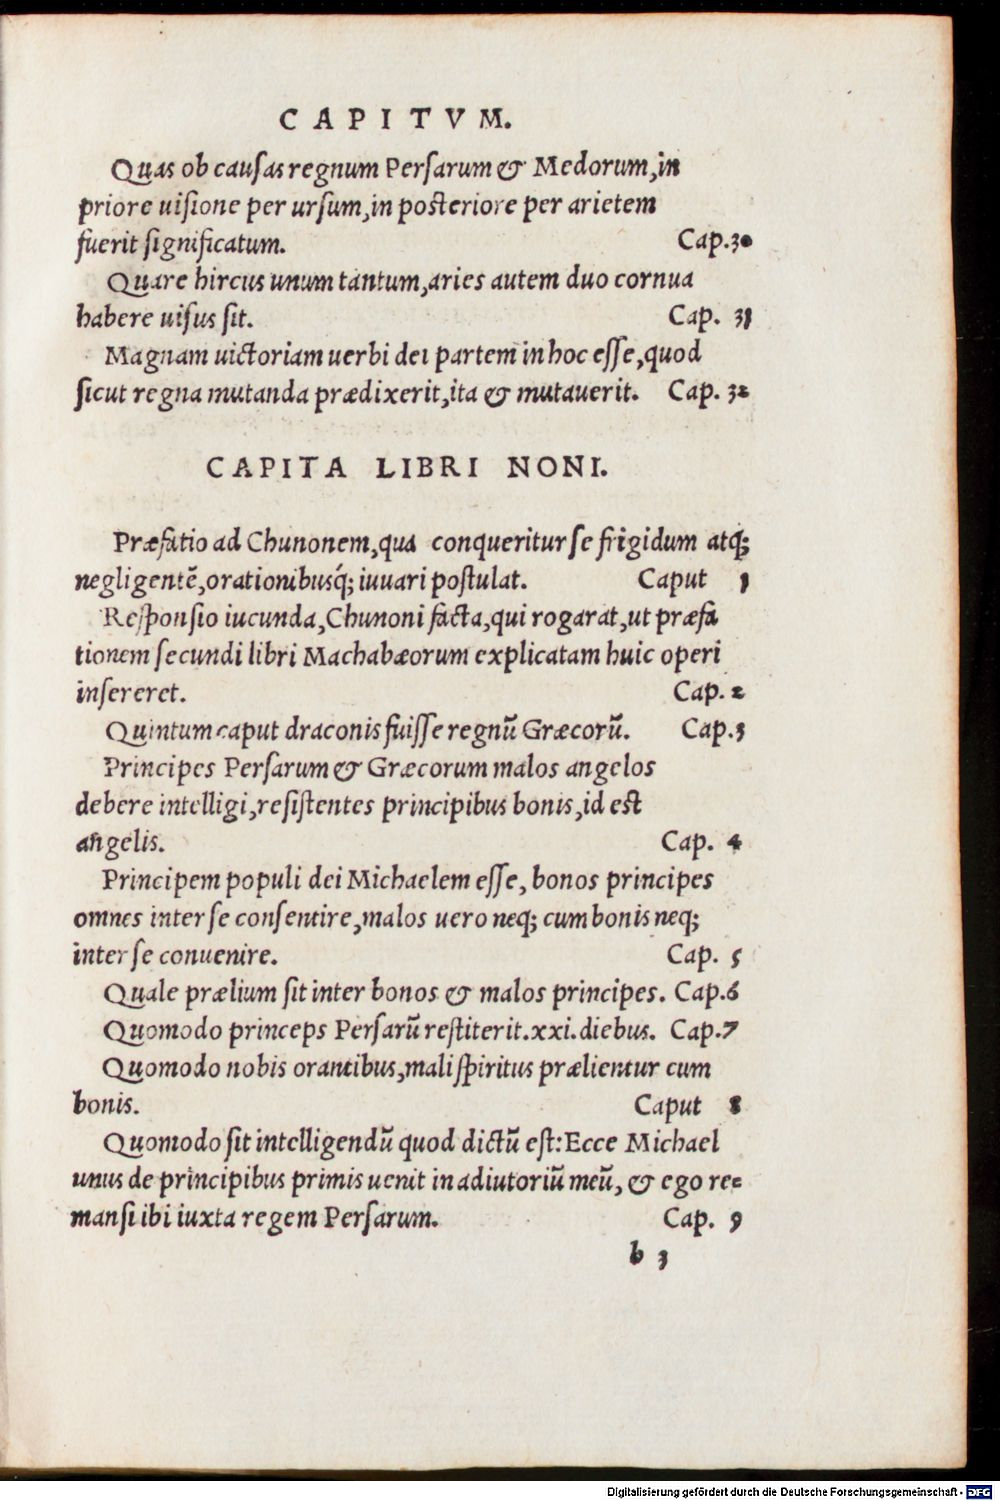 CAPITVM.
Quas ob causas regnum Persarum & Medorum,in
priore uisione per ursum,in posteriore per arietem
fuerit significatum. Cap.30
Quare hircus unum tantum,aries autem duo cornua
habere uisus sit. Cap. 31
Magnam uictoriam uerbi dei partem in hoc esse,quod
sicut regna mutanda prædixerit,ita & mutauerit. Cap. 32
CAPITA LIBRI NONI.
Præfatio ad Chunonem,qua conqueritur se frigidum atq;
negligentē,orationibusq́; iuuari postulat. Caput 1
Responsio iucunda,Chunoni facta,qui rogarat,ut præfa
tionem secundi libri Machabæorum explicatam huic operi
insereret. Cap. 2
Quintum caput draconis fuisse regnū Græcorū. Cap.3
Principes Persarum & Græcorum malos angelos
debere intelligi,resistentes principibus bonis,id est
angelis. Cap. 4
Principem populi dei Michaelem esse, bonos principes
omnes inter se consentire,malos uero neq; cum bonis neq;
inter se conuenire. Cap. 5
Quale prælium sit inter bonos & malos principes. Cap.6
Quomodo princeps Persarū restiterit.xxi.diebus. Cap.7
Quomodo nobis orantibus,mali spiritus prælientur cum
bonis. Caput 8
Quomodo sit intelligendū quod dictū est:Ecce Michael
unus de principibus primis uenit in adiutoriū meū, & ego re=
mansi ibi iuxta regem Persarum. Cap. 9
b 3
Digitalisierung gefördert durch die Deutsche Forschungsgemeinschaft - DFG